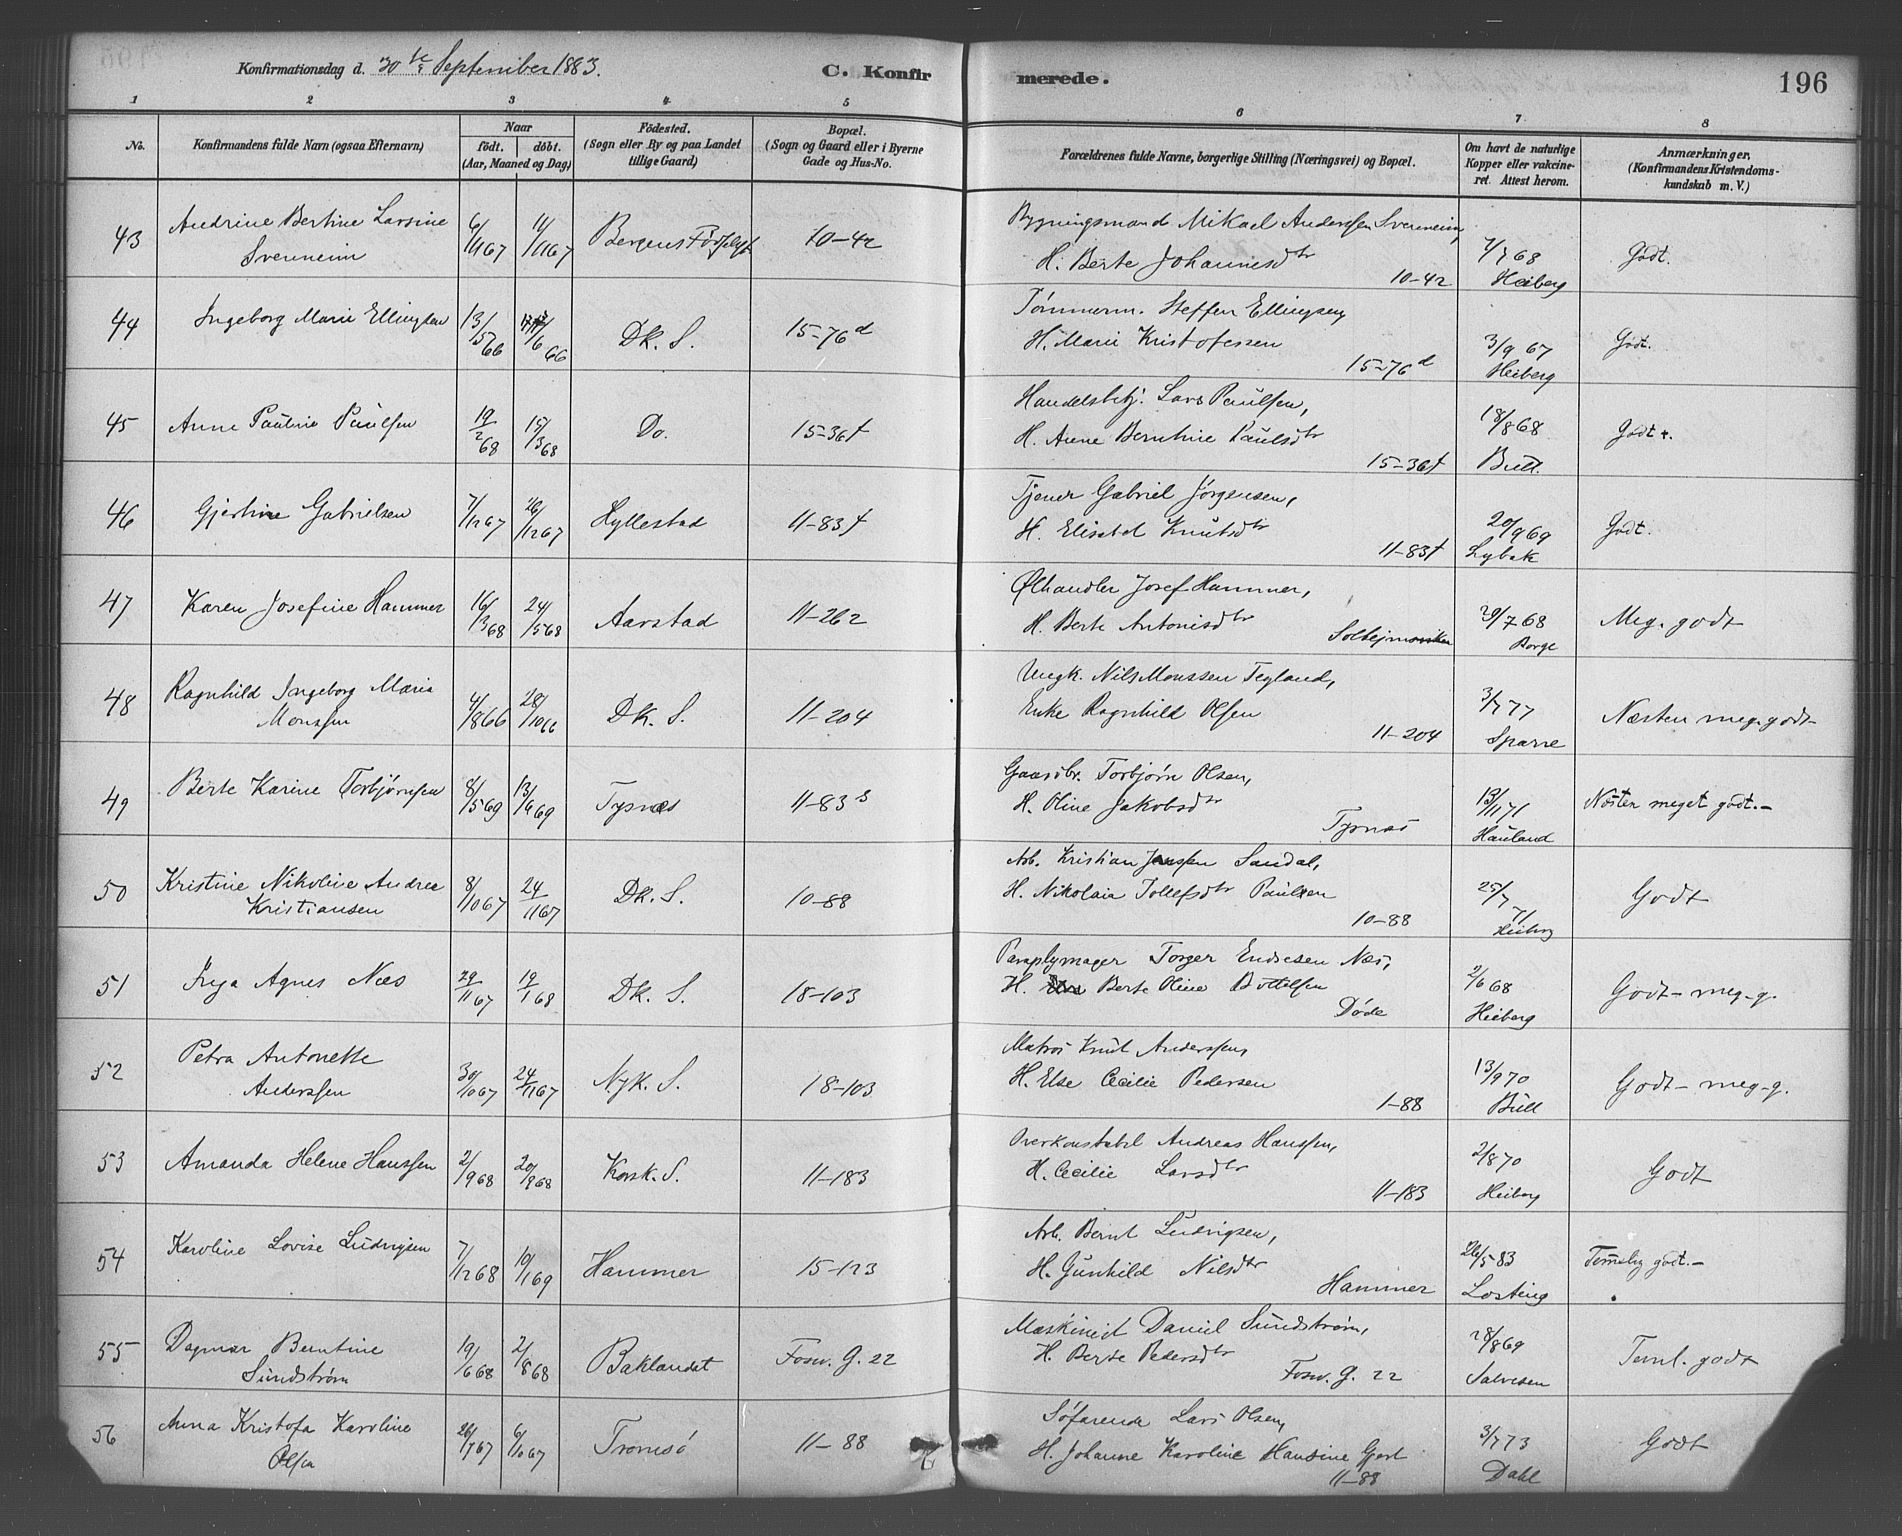 Konfirmationsdag d. 30te September 1883.
C. Konfirmerede.
196
1 2 3 4 5 6 7 8
No.
Konfirmandens fulde Navn (ogsaa Efternavn)
Naar
født. døbt.
(Aar, Maaned og Dag)
Fødested.
(Sogn eller By og paa Landet
tillige Gaard)
Bopæl.
(Sogn og Gaard eller i Byerne
Gade og Hus-No.
Forældrenes fulde Navne, borgerlige Stilling (Næringsvei) og Bopæl.
Om havt de naturlige
Kopper eller vakcine-
ret. Attest herom.
Anmærkninger.
(Konfirmandens Kristendoms-
kundskab m. V.)
43 Andrine Bertine Larsine 6/11 67 Bergens Fødslsst 10-42 Bygningsmand Mikael Anderssen Svenneim, 7/7 68 Godt.
Svenneim H. Berte Johannesdtr 10-42 Heiberg
44 Ingeborg Marie Ellingsen 13/5 66 /6 66 Dk. S. 15-76d Tømmerm. Steffen Ellingsen, 3/9 67 Godt.
H. Marie Kristofessen 15-76d Heiberg
45 Anne Pauline Paulsen 19/2 68 15/3 68 Do. 15-36f Handelsbetj. Lars Paulsen, 18/8 68 Godt +.
H. Anne Berntine Paulsdtr 15-36f Bull.
46 Gjertine Gabrielsen 7/12 67 26/12 67 Hyllestad 11-83f Tjener Gabriel Jørgensen, 20/9 69 Godt.
H. Elisabet Knutsdtr 11-83f Lybæk
47 Karen Josefine Hammer 16/3 68 24/5 68 Aarstad 11-262 Ølhandler Josef Hammer, 29/7 68 Meg. godt
H. Berte Antonisdtr Solhejmsviken Borge
48 Ragnhild Ingeborg Maria 4/8 66 28/10 66 Dk. S. 11-204 Ungk. Nils Monssen Tegland, 3/7 77 Næsten meg. godt-
Monssen Enke Ragnhild Olsen 11-204 Sparre
49 Berte Karine Torbjørnsen 8/5 69 13/6 69 Tysnæs 11-83s Gaardbr. Torbjørn Olsen, 13/11 71 Næsten meget godt.-
H. Oline Jakobsdtr Tysnæs Hauland
50 Kristine Nikoline Andrea 8/10 67 24/11 67 Dk. S. 10-88 Arb. Kristian Janssen Sandal, 25/7 71 Godt
Kristiansen H. Nikolaia Tollefsdtr Paulsen 10-88 Heiberg
51 Inga Agnes Næs 29/11 67 19/1 68 Dk. S. 18-103 Paraplymager Torger Endresen Næs, 2/6 68 Godt- meg-g.
H. Berte Oline Bottelsen Døde Heiberg
52 Petra Antonette 30/10 67 24/11 67 Nyk. S. 18-103 Matros Knut Anderssen, 13/9 70 Godt- meg-g.
Anderssen H. Else Cecilie Pedersen 1-88 Bull
53 Amanda Helene Hanssen 2/9 68 20/9 68 Korsk. S. 11-183 Overkonstabel Andreas Hanssen, 2/8 70 Godt
H. Cecilie Larsdtr 11-183 Heiberg
54 Karoline Lovise Ludvigsen 7/12 68 10/1 69 Hammer 15-123 Arb. Bernt Ludvigsen, 26/5 83 Temelig godt.-
H. Gunhild Nilsdtr Hammer Losting
55 Dagmar Berntine 19/6 68 2/8 68 Baklandet Fosw. G. 22 Maskinist Daniel Sundstrøm, 28/8 69 Teml. godt
Sundstrøm H. Berte Pedersdtr Fosw. G. 22 Salvesen
56 Anna Kristofa Karoline 26/7 67 6/10 67 Tromsø 11-88 Søfarende Lars Olsen, 3/7 73 Godt
Olsen H. Johanne Karoline Hansine Gjert 11-88 Dahl